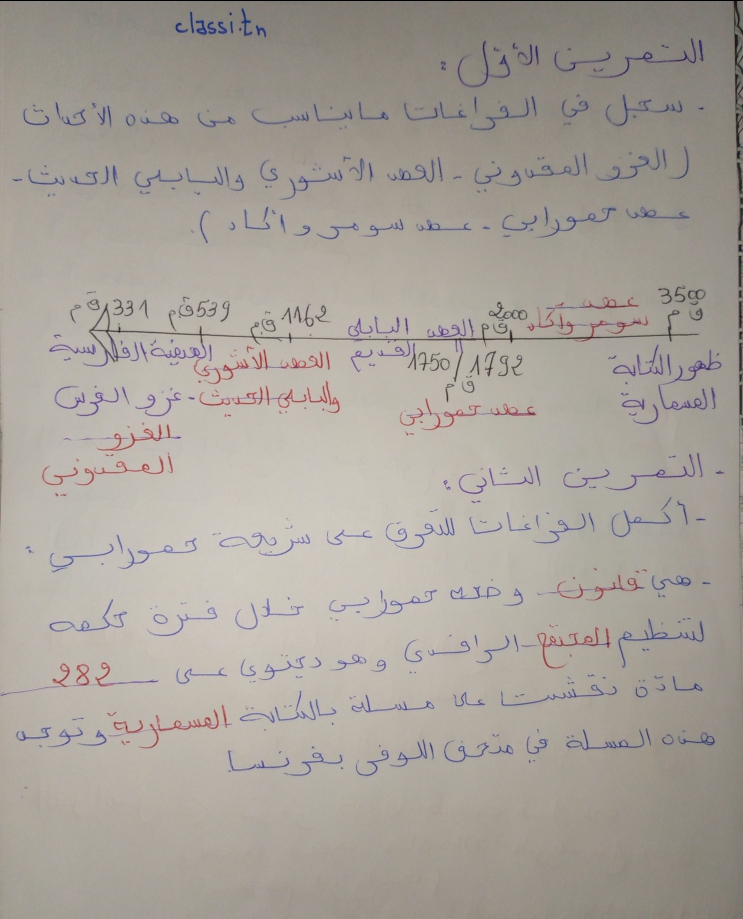 classi.tn
التمرين الأوّل :
- سجل في الفراغات ما يناسب من هذه الأحداث
(الغزو المقدوني - العصر الآشوري والبابلي الحديث -
عصر حمورابي - عصر سومر وأكاد).
3500 ق م
عصر سومر وأكاد
2000 ق م
العصر البابلي القديم
1162 ق م
539 ق م
331 ق م
ظهور الكتابة المسمارية
1792 / 1750 ق م
عصر حمورابي
العصر الآشوري والبابلي الحديث
الفارسية
- غزو الفرس
الغزو المقدوني
- التمرين الثاني :
- أكمل الفراغات للتعرف على شريعة حمورابي :
- هي قانون وضعه حمورابي خلال فترة حكمه
لتنظيم المجتمع الرافدي وهو يحتوي على 282
مادّة نقشت على مسلة بالكتابة المسمارية وتوجد
هذه المسلة في متحف اللوفر بفرنسا